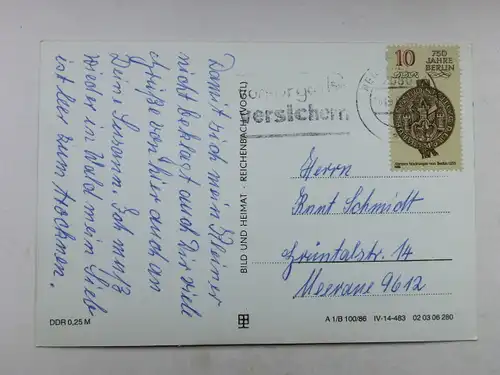 Damit sich mein Kleiner
nicht beklagt auch Dir viele
Grüße von hier auch an
Deine Susann. Ich muß
wieder in Wald mein Sieb
ist leer zum Trocknen.
BILD UND HEIMAT · REICHENBACH (VOGTL)
DDR 0,25 M
versichern
10
750
JAHRE
BERLIN
Herrn
Schmidt
Grüntalstr. 14
Meerane 9612
A 1/B 100/86 IV-14-483 02 03 06 280